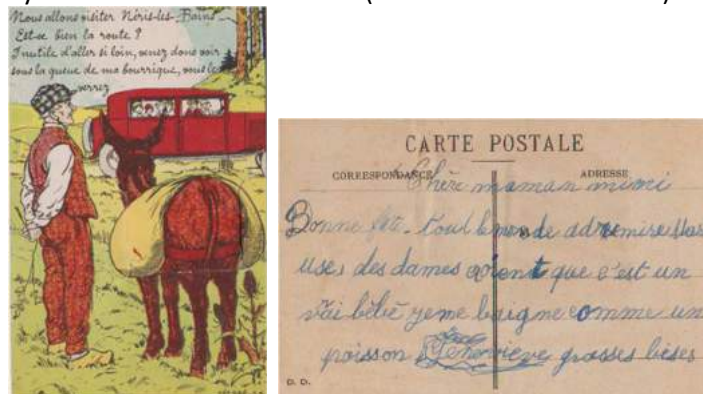 Nous allons visiter Néris-les-Bains
Est-ce bien la route ?
Inutile d'aller si loin, venez donc voir
sous la queue de ma bourrique, vous le
verrez
CARTE POSTALE
CORRESPONDANCE
ADRESSE
Chère maman mimi
Bonne fête. tout le monde
uses des dames que c'est un
vai bébé jeme baigne comme un
poisson Geneviève grosses bises
D. D.